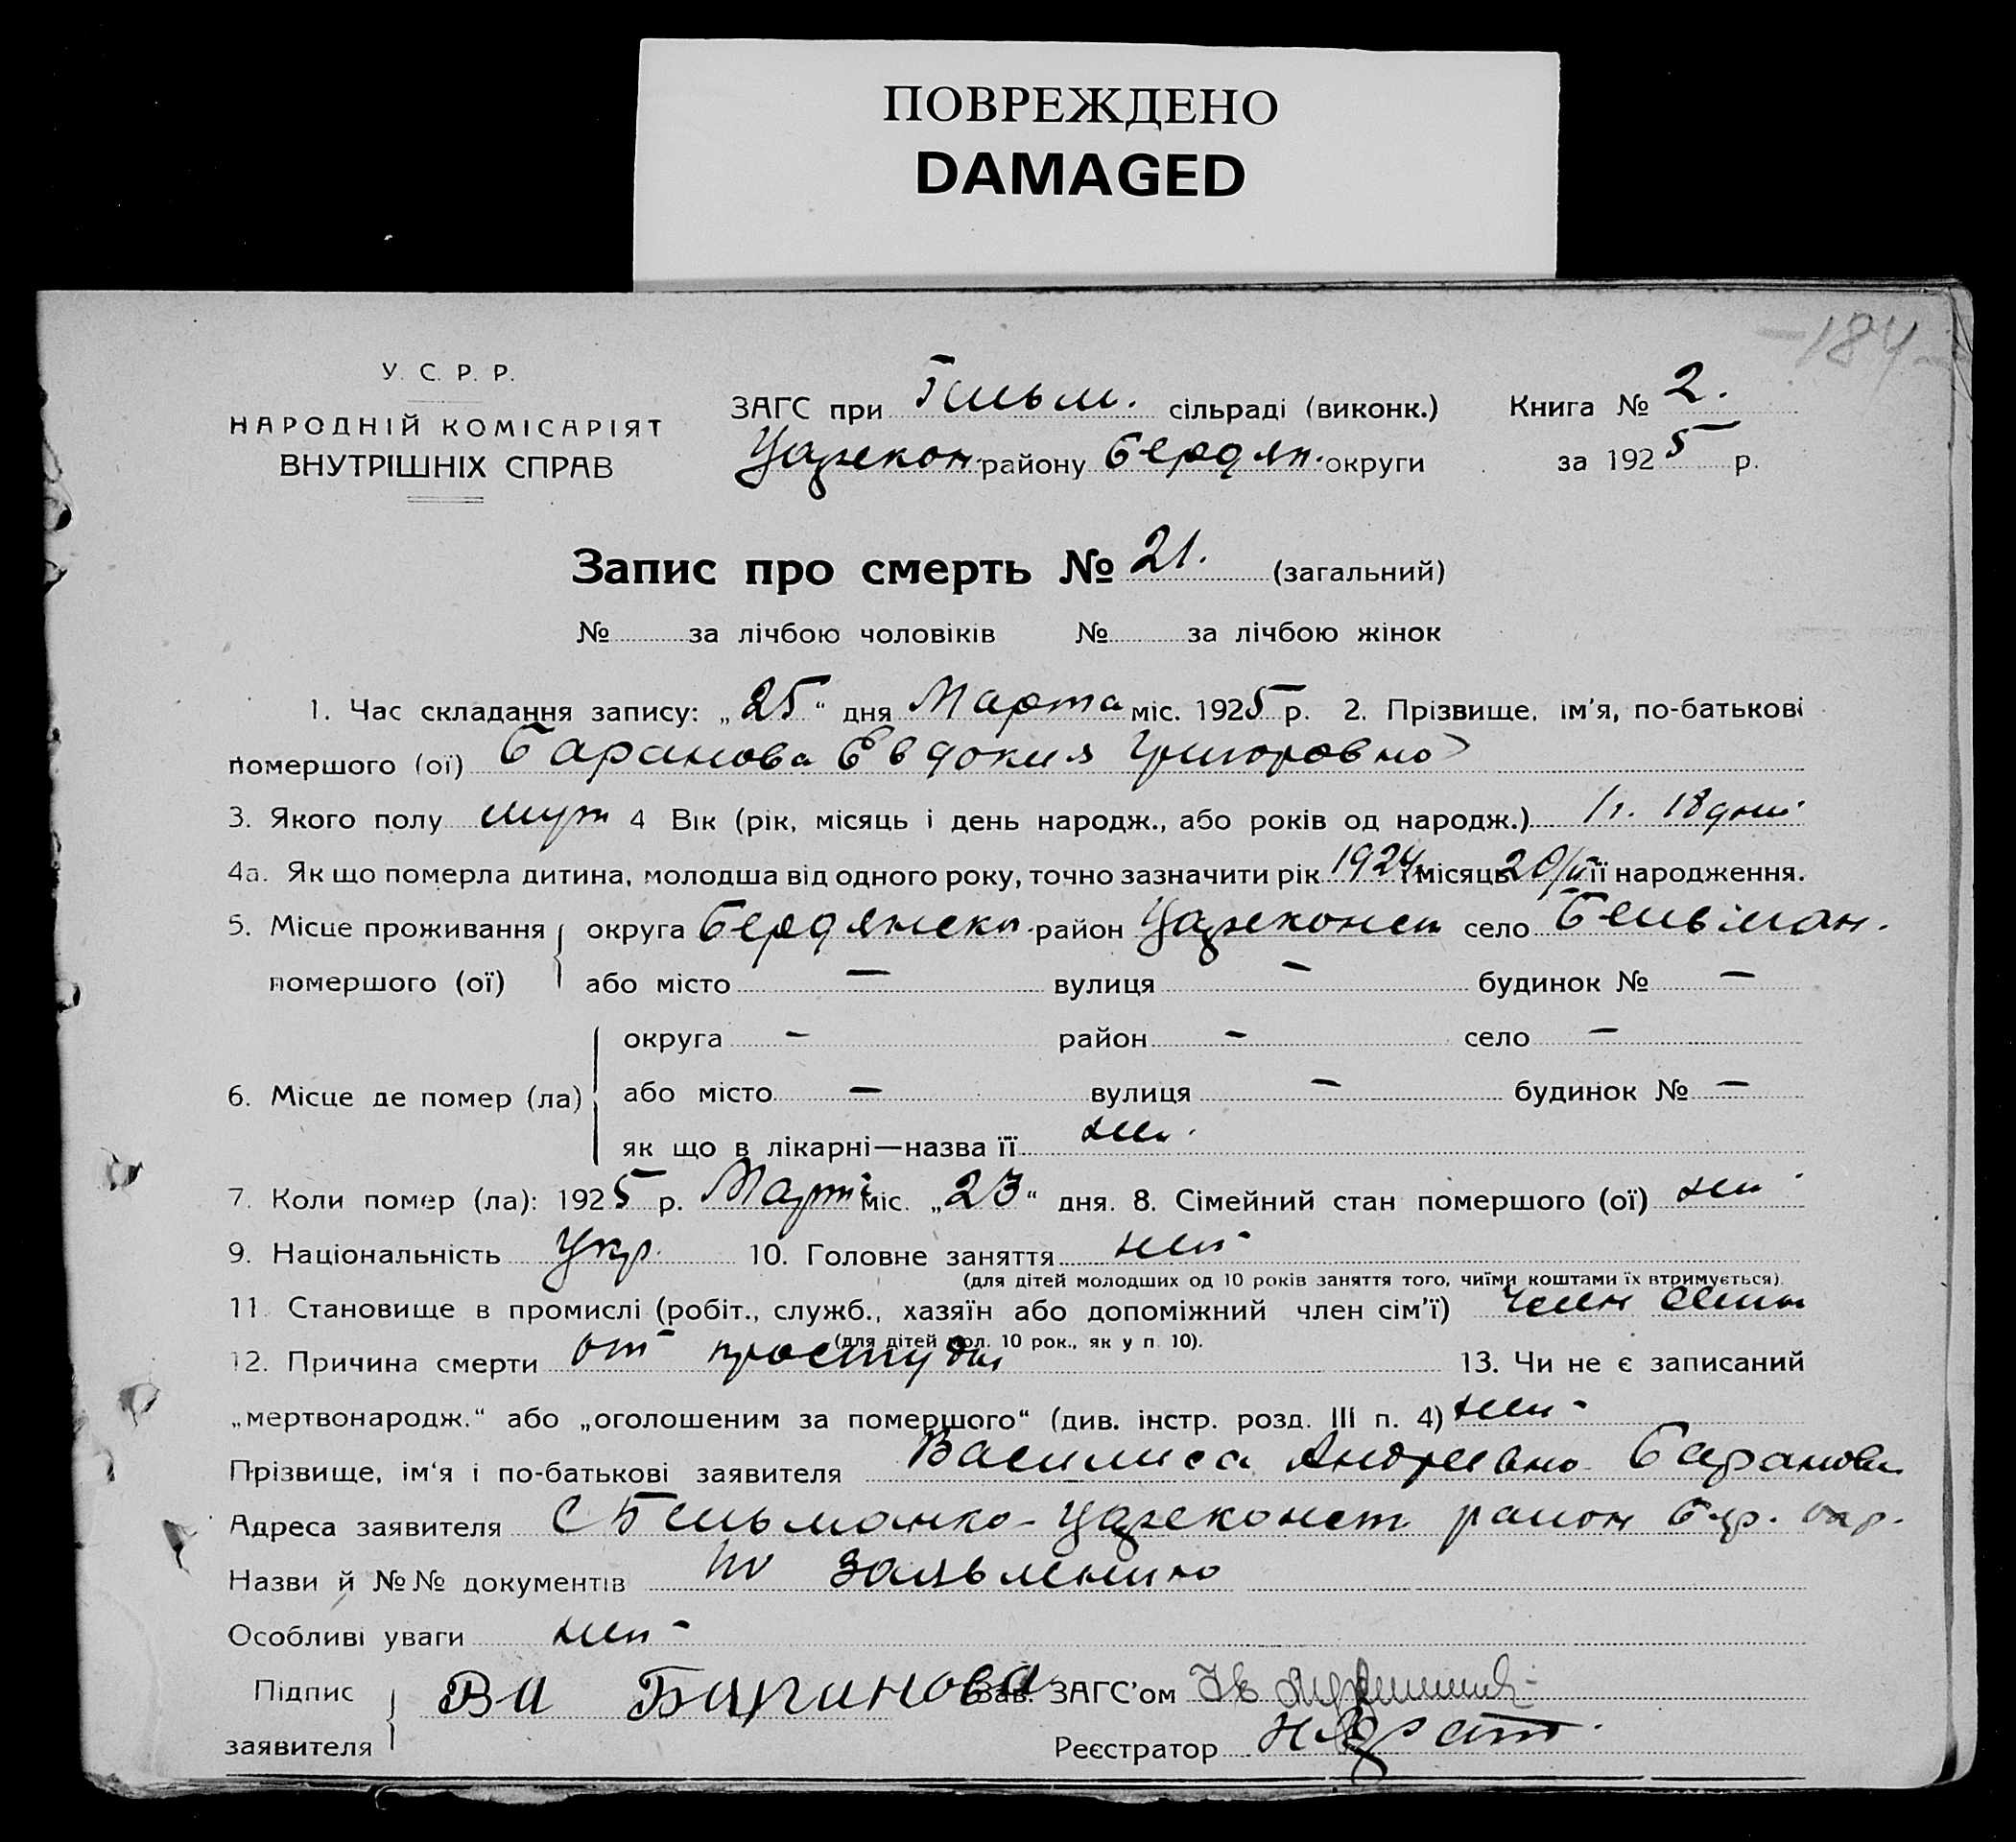 ПОВРЕЖДЕНО
DAMAGED
-184-
У. С. Р. Р.
НАРОДНІЙ КОМІСАРІЯТ
ВНУТРІШНІХ СПРАВ
ЗАГС при Бильм. сільраді (виконк.) Книга № 2.
Царекон. району Бердян. округи за 1925 р.
Запис про смерть № 21. (загальний)
№ за лічбою чоловіків № за лічбою жінок
1. Час складання запису: „25“ дня Марта міс. 1925 р. 2. Прізвище, ім'я, по-батькові
помершого (ої) Баранова Евдокия Григоровно
3. Якого полу 4 Вік (рік, місяць і день народж., або років од народж.) 1 г. 18 дни
4а. Як що померла дитина, молодша від одного року, точно зазначити рік 1924 і місяць 20/ її народження.
5. Місце проживання округа Бердянски район Цареконст село Бельман.
помершого (ої) або місто — вулиця — будинок № —
округа — район — село —
6. Місце де помер (ла) або місто — вулиця — будинок № —
як що в лікарні—назва її нет
7. Коли помер (ла): 1925 р. Март міс. „23“ дня. 8. Сімейний стан помершого (ої) нет
9. Національність Укр. 10. Головне заняття нет
(для дітей молодших од 10 років заняття того, чиїми коштами їх втримується).
11. Становище в промислі (робіт., служб., хазяїн або допоміжний член сім'ї) член семи
(для дітей мол. 10 рок., як у п. 10).
12. Причина смерти от простуды 13. Чи не є записаний
„мертвонародж.“ або „оголошеним за помершого“ (див. інстр. розд. III п. 4) нет
Прізвище, ім'я і по-батькові заявителя Василиса Андреевно Баранова
Адреса заявителя с Бельманко-Цареконст район Бер. окр.
Назви й №№ документів по заявлению
Особливі уваги нет
Підпис заявителя Ва Баранова Зав. ЗАГС'ом
Реєстратор